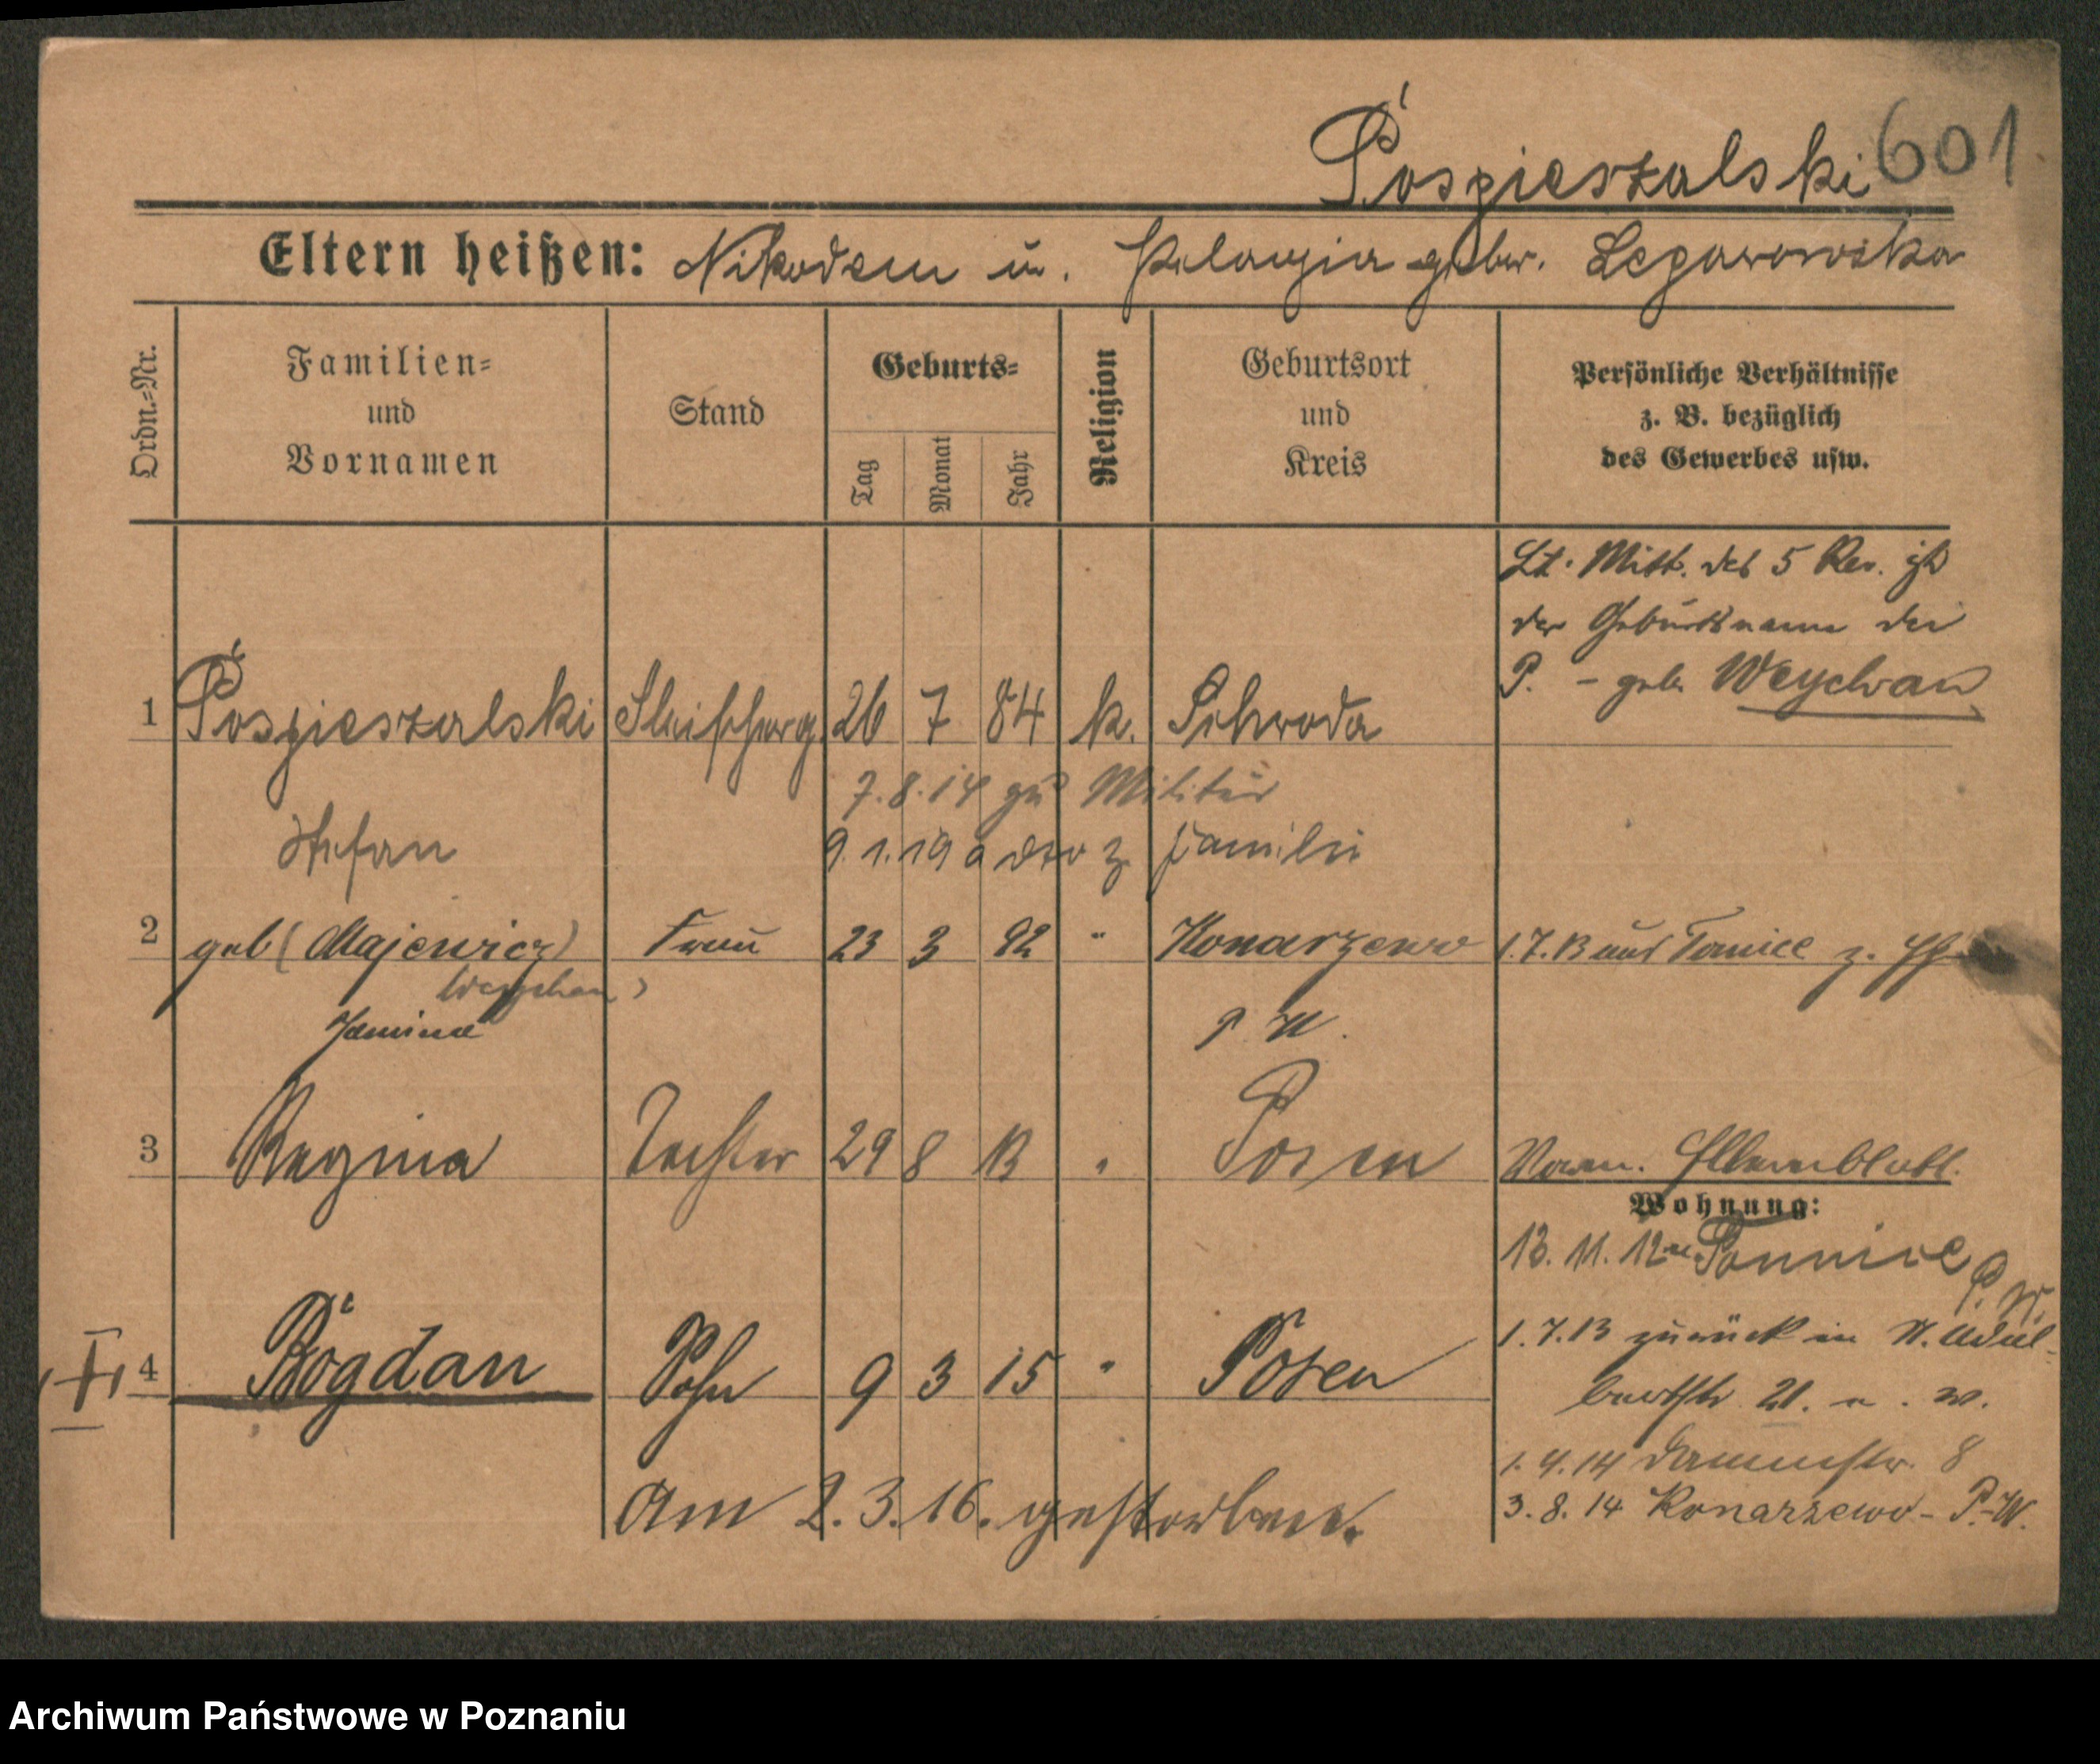 Pospieszalski 601
Eltern heißen: Nikodem u. Pelagia gebor.
Ordn.=Nr.
Familien= und Vornamen
Stand
Geburts=
Tag
Monat
Jahr
Religion
Geburtsort und Kreis
Persönliche Verhältnisse
z. B. bezüglich
des Gewerbes usw.
Lt. Mitt. des 5 Rev. ist
der Geburtsname der
P. - geb. Weychan
1 Pospieszalski 26 7 84 k. Schroda
7.8.14 zum Militär
Stefan 9.1.19 z. Familie
2 geb (Majewicz) Frau 23 3 92 " Konarzewo 1.7.13 aus z.
Weychan)
Janina P. W.
3 Regina Tochter 29 8 13 " Posen
Wohnung:
13. 11. 12 P. W.
4 Bogdan Sohn 9 3 15 " Posen
1.7.13 zurück in
21.
1.4.14 Dammstr. 8
Am 2.3.16. gestorben.
3.8.14 Konarzewo - P.-W.
Archiwum Państwowe w Poznaniu